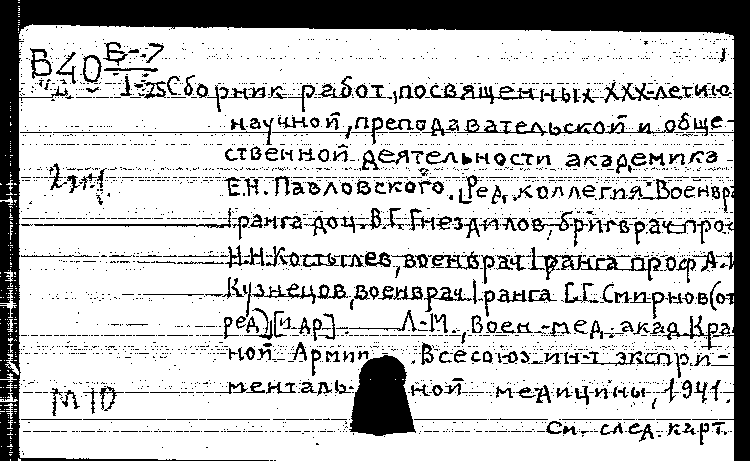 В40 Б-7
1-25 Сборник работ, посвященных XXX-летию
научной, преподавательской и обще-
ственной деятельности академика
2 эк. Е.Н. Павловского. [Ред. коллегия: Военвр
I ранга доц. В.Г. Гнездилов, бригврач про
Н.Н. Костылев, военврач I ранга проф А.
Кузнецов, военврач I ранга С.Г. Смирнов (от
ред.) [и др]. Л-М., Воен-мед. акад Кра
ной Армии. Всесоюз. ин-т экспри-
ментальной медицины, 1941.
М 10
См. след. карт.